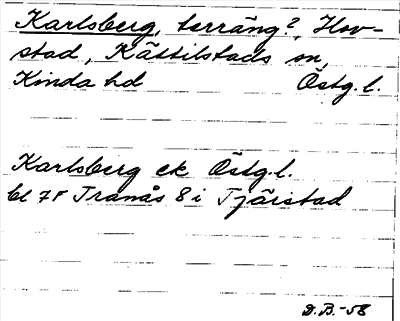 Karlsberg, terräng?, Hov-
stad, Kättilstads sn,
Kinda hd Östg.l.
Karlsberg ek Östg.l.
bl 7F Tranås 8 i Tjärstad
D.B.-58